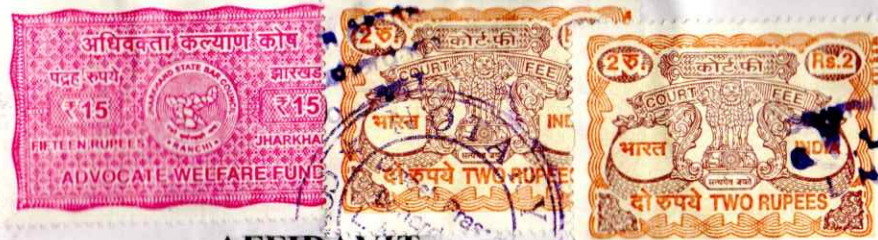 अधिवक्ता कल्याण कोष
पंद्रह रुपये
झारखंड
JHARKHAND STATE BAR COUNCIL
RANCHI
₹15
₹15
FIFTEEN RUPEES
JHARKHA
ADVOCATE WELFARE FUND
2रु.
कोर्ट फी
COURT FEE
भारत
IND
दो रुपये TWO RUPEES
2रु.
कोर्ट फी
Rs.2
COURT FEE
भारत
INDIA
सत्यमेव जयते
दो रुपये TWO RUPEES
AFFIDAVIT